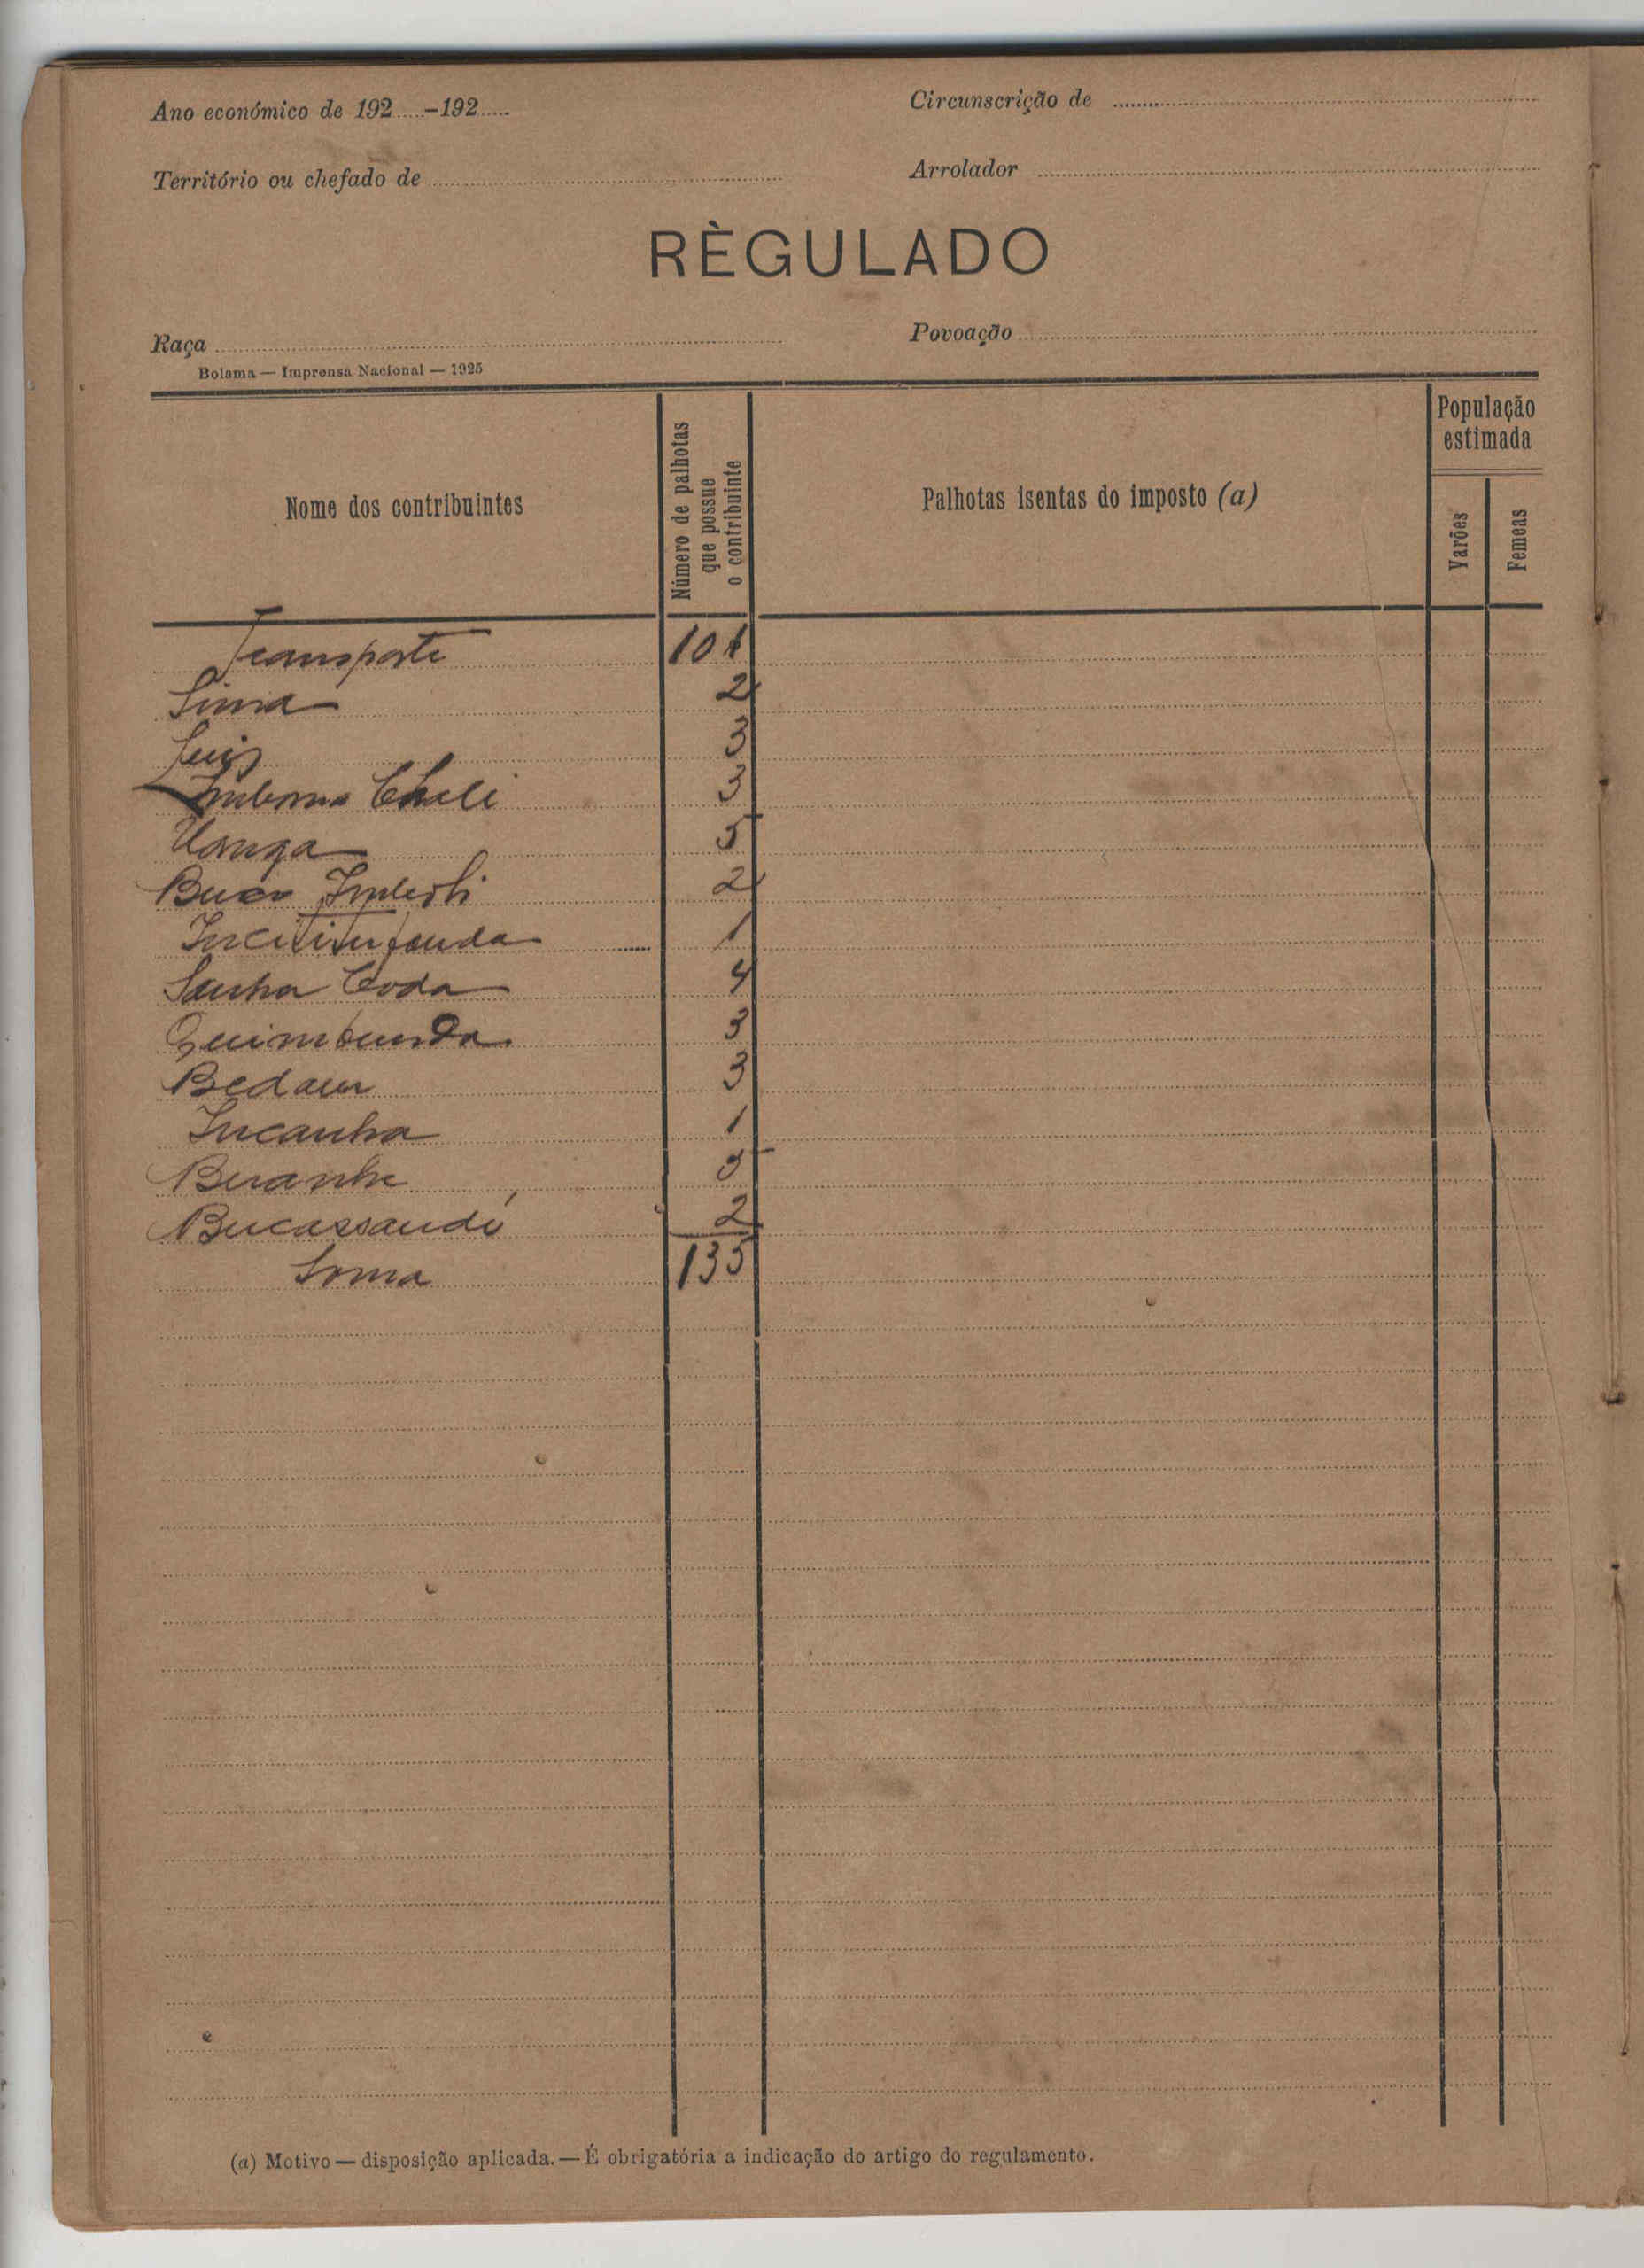 Ano económico de 192.....-192.....
Circunscrição de
Território ou chefado de
Arrolador
RÈGULADO
Raça
Povoação
Bolama — Imprensa Nacional — 1925
Nome dos contribuintes
Número de palhotas que possue o contribuinte
Palhotas isentas do imposto (a)
População estimada
Varões
Femeas
Transporte 101
Sinna 2
Luis 3
Chali 3
Uanga 5
Buco 2
1
Sanha Coda 4
Quimbunda 3
Bedaur 3
Incanha 1
Buanhe 5
Bucassandi 2
Soma 135
(a) Motivo — disposição aplicada. — É obrigatória a indicação do artigo do regulamento.